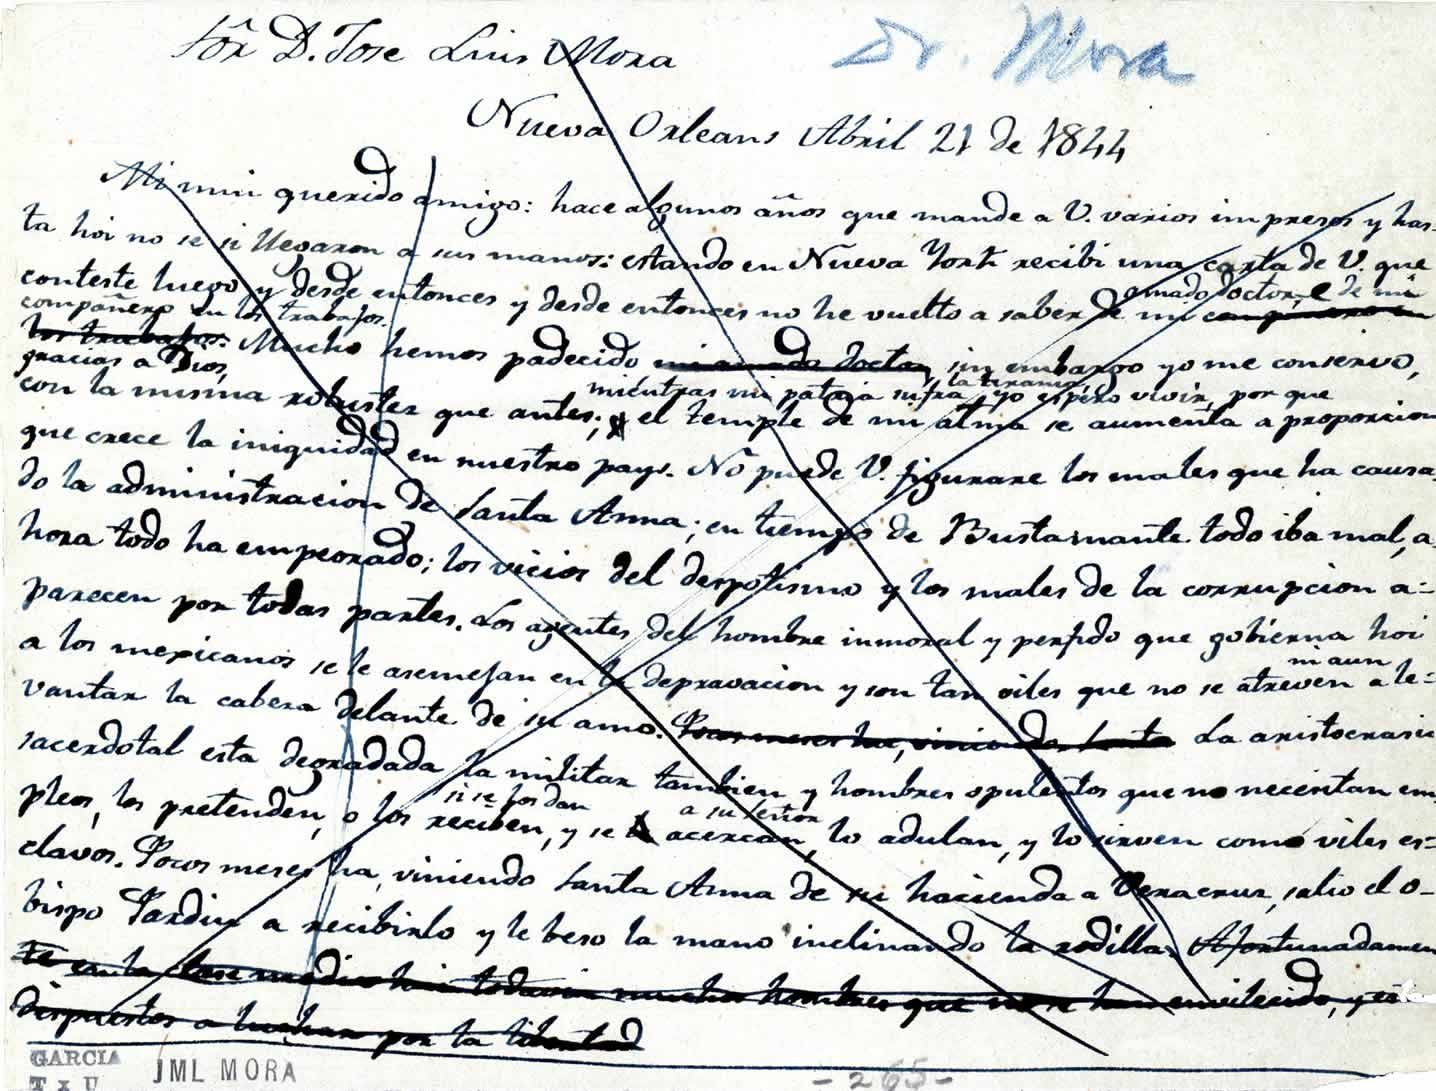 Sõr D. Jose Luis Mora
Dr. Mora
Nueva Orleans Abril 21 de 1844
Mi mui querido amigo: hace algunos años que mande a V. varios impresos y has-
ta hoi no se si llegaron a sus manos: estando en Nueva York recibi una carta de V. que
conteste luego y desde entonces y desde entonces no he vuelto a saber de mi compañero en
amado doctor, e de mi
compañero en los trabajos.
los trabajos. Mucho hemos padecido mi amado doctor, sin embargo yo me conservo,
gracias a Dios,
mientras mi patria sufra la tirania, yo espero vivir, por que
con la misma robustez que antes; y el temple de mi alma se aumenta a proporcion
que crece la iniquidad en nuestro pays. No puede V. figurarse los males que ha causa-
do la administracion de Santa Anna; en tiempo de Bustamante todo iba mal, a-
hora todo ha empeorado; los vicios del despotismo y los males de la corrupcion a-
parecen por todas partes. Los agentes del hombre inmoral y perfido que gobierna hoi
a los mexicanos se le asemejan en la depravacion y son tan viles que no se atreven a le-
ni aun
vantar la cabeza delante de su amo. Pocos meses ha, viniendo Santa La aristocrasia
sacerdotal esta degradada la militar tambien y hombres opulentos que no necesitan em-
pleos, los pretenden, o los reciben, y se acercan, lo adulan, y lo sirven como viles es-
si se los dan
a su señor
clavos. Pocos meses ha, viniendo Santa Anna de su hacienda a Veracruz, salio el o-
bispo Pardiu a recibirlo y le beso la mano inclinando la rodilla. Afortunadamen
te en la clase media hai todavia muchos hombres que no se han envilecido, y estan
dispuestos a luchar por la libertad
GARCIA
JML MORA
- 265 -